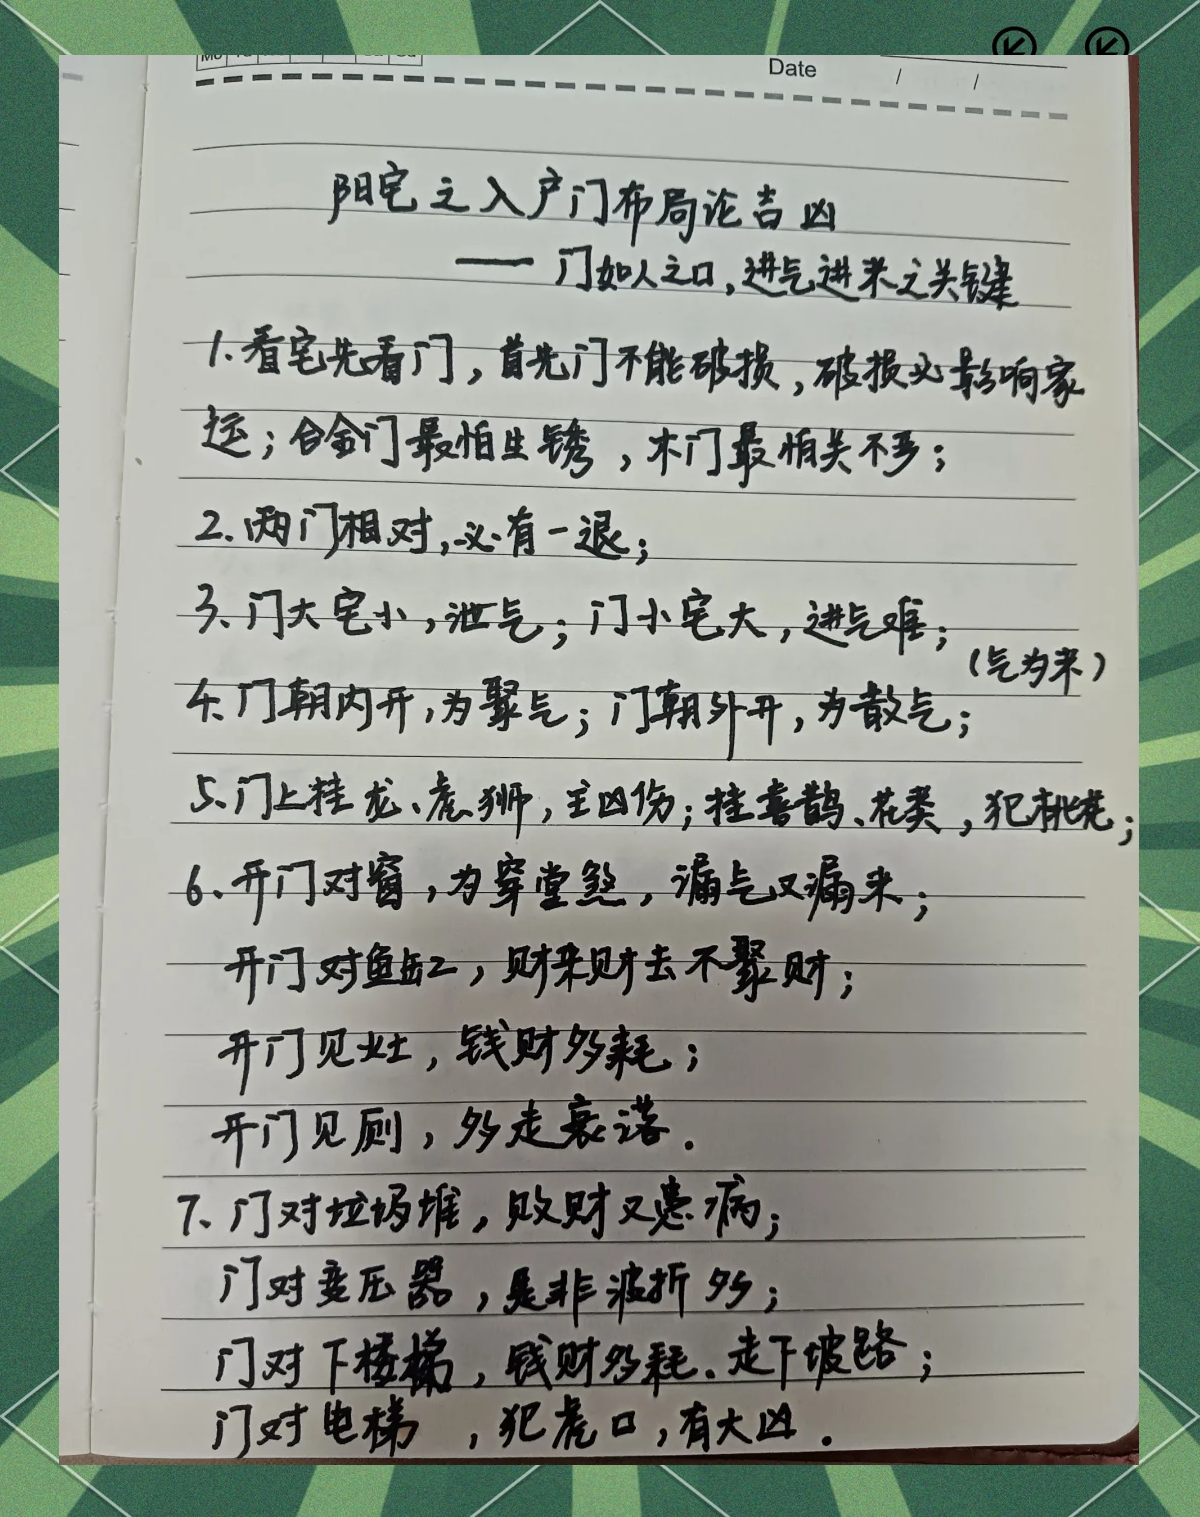 Date / /
阳宅之入户门布局论吉凶
—— 门如人之口,进气进来之关键
1.看宅先看门,首先门不能破损,破损必影响家
运;合金门最怕生锈,木门最怕关不严;
2.两门相对,必有一退;
3、门大宅小,泄气;门小宅大,进气难;
(气为来)
4.门朝内开,为聚气;门朝外开,为散气;
5.门上挂龙、虎、狮,主凶伤;挂喜鹊、花类,犯桃花;
6、开门对窗,为穿堂煞,漏气又漏来;
开门对鱼缸,财来财去不聚财;
开门见灶,钱财多耗;
开门见厕,多走衰落.
7、门对垃圾堆,败财又患病;
门对变压器,是非波折多;
门对下楼梯,钱财多耗、走下坡路;
门对电梯,犯虎口,有大凶.